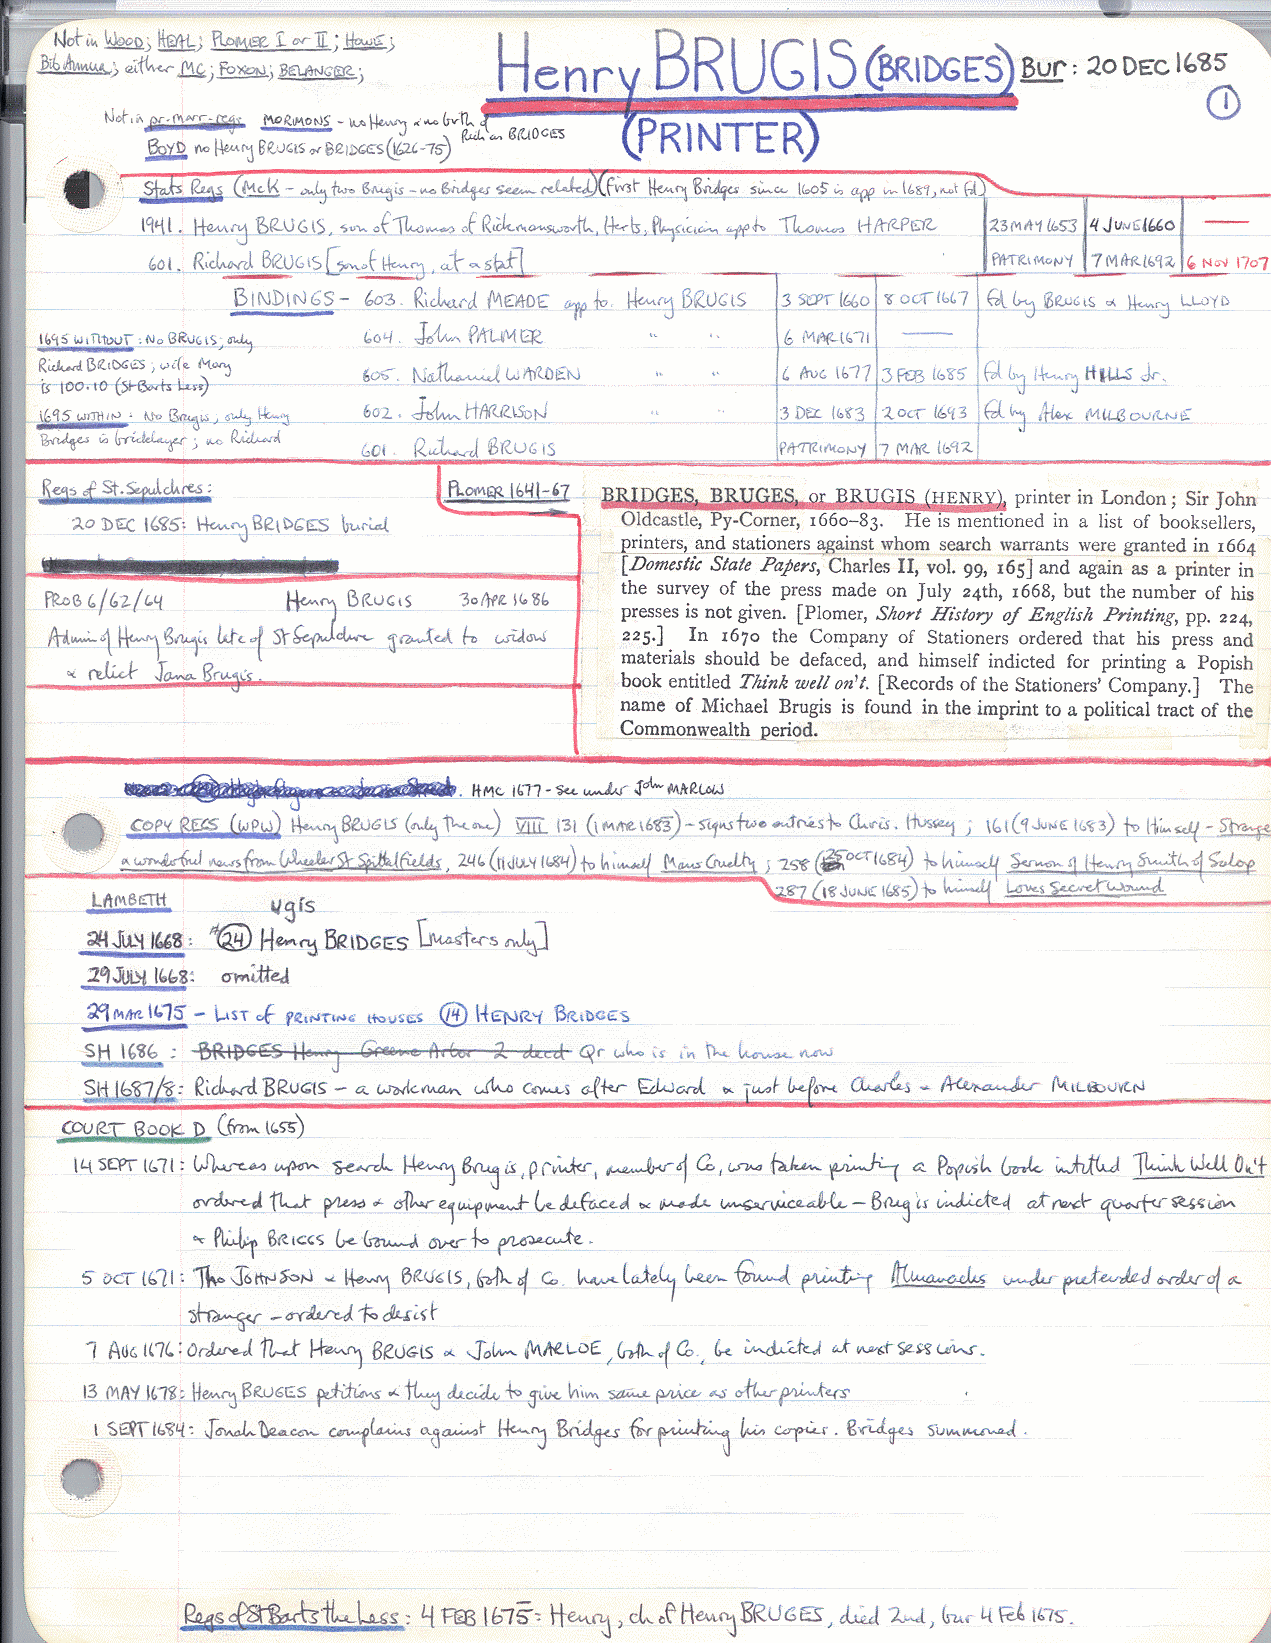 Not in WOOD; HEAL; PLOMER I or II; HOWE;
Bib Annua; either MC; FOXON; BELANGER;
Henry BRUGIS (BRIDGES) Bur: 20 DEC 1685
(PRINTER)
1
Not in pr-marr-regs MORMONS - no Henry & no birth of Rich as BRIDGES
BOYD no Henry BRUGIS or BRIDGES (1626-75)
Stats Regs (McK - only two Brugis - no Bridges seem related) (First Henry Bridges since 1605 is app in 1689, not fd)
1941. Henry BRUGIS, son of Thomas of Rickmansworth, Herts, Physician app to Thomas HARPER 23 MAY 1653 4 JUNE 1660 —
601. Richard BRUGIS [son of Henry, at a stat] PATRIMONY 7 MAR 1692 6 NOV 1707
BINDINGS - 603. Richard MEADE app to. Henry BRUGIS 3 SEPT 1660 8 OCT 1667 fd by BRUGIS & Henry LLOYD
604. John PALMER " " 6 MAR 1671 —
605. Nathaniel WARDEN " " 6 AUG 1677 3 FEB 1685 fd by Henry HILLS Jr.
602. John HARRISON " " 3 DEC 1683 2 OCT 1693 fd by Alex MILBOURNE
601. Richard BRUGIS PATRIMONY 7 MAR 1692
1695 WITHOUT: No BRUGIS; only
Richard BRIDGES; wife Mary
is 100.10 (St Barts Less)
1695 WITHIN: No Brugis; only Henry
Bridges is bricklayer; no Richard
Regs of St. Sepulchres:
20 DEC 1685: Henry BRIDGES burial
PROB 6/62/64 Henry BRUGIS 30 APR 1686
Admin of Henry Brugis late of St Sepulchre granted to widow
& relict Jana Brugis.
PLOMER 1641-67
BRIDGES, BRUGES, or BRUGIS (HENRY), printer in London; Sir John
Oldcastle, Py-Corner, 1660–83. He is mentioned in a list of booksellers,
printers, and stationers against whom search warrants were granted in 1664
[Domestic State Papers, Charles II, vol. 99, 165] and again as a printer in
the survey of the press made on July 24th, 1668, but the number of his
presses is not given. [Plomer, Short History of English Printing, pp. 224,
225.] In 1670 the Company of Stationers ordered that his press and
materials should be defaced, and himself indicted for printing a Popish
book entitled Think well on't. [Records of the Stationers' Company.] The
name of Michael Brugis is found in the imprint to a political tract of the
Commonwealth period.
HMC 1677 - see under John MARLOW
COPY REGS (WPW) Henry BRUGIS (only the one) VIII 131 (1 MAR 1683) - signs two entries to Chris. Hussey; 161 (9 JUNE 1683) to Himself - Strange
& wonderful news from Wheeler St Spittalfields, 246 (11 JULY 1684) to himself Mans Cruelty; 258 (25 OCT 1684) to himself Sermon of Henry Smith of Salop
287 (18 JUNE 1685) to himself Loves Secret Wound
LAMBETH
ugis
24 JULY 1668: 24 Henry BRIDGES [Masters only]
29 JULY 1668: omitted
29 MAR 1675 - LIST of PRINTING HOUSES 14 HENRY BRIDGES
SH 1686: BRIDGES Henry Greene Arbor 2 decd Qr who is in the house now
SH 1687/8: Richard BRUGIS - a workman who comes after Edward & just before Charles & Alexander MILBOURN
COURT BOOK D (from 1655)
14 SEPT 1671: Whereas upon search Henry Brugis, printer, member of Co, was taken printing a Popish book intitled Think Well On't
ordered that press & other equipment be defaced & made unserviceable - Brugis indicted at next quarter session
& Philip BRIGGS be bound over to prosecute.
5 OCT 1671: Tho JOHNSON & Henry BRUGIS, both of Co. have lately been found printing Almanacks under pretended order of a
stranger - ordered to desist
7 AUG 1676: Ordered that Henry BRUGIS & John MARLOE, both of Co., be indicted at next sessions.
13 MAY 1678: Henry BRUGES petitions & they decide to give him same price as other printers
1 SEPT 1684: Jonah Deacon complains against Henry Bridges for printing his copies. Bridges summoned.
Regs of St Barts the Less: 4 FEB 1675: Henry, ch of Henry BRUGES, died 2nd, bur 4 Feb 1675.